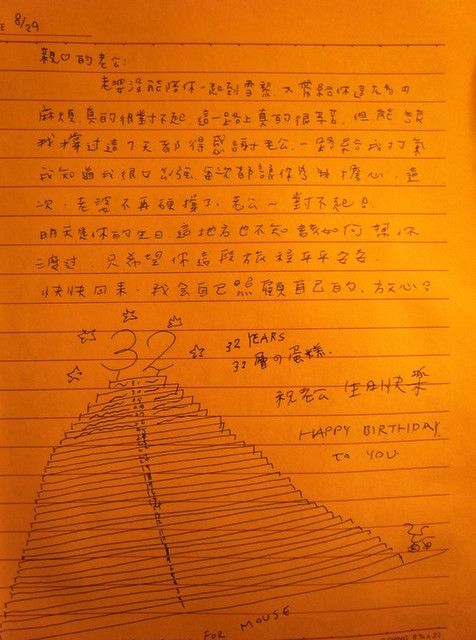 8/29
親♡的老公:
老婆沒能陪你一起到雪梨,又帶給你這麼多的
麻煩真的很對不起.這一路上真的很辛苦.但能讓
我撐过這7天都得感謝老公.一路幫我打氣
我知道我很逞強.每次都讓你為我擔心.這
次.老婆不再硬撐了.老公~對不起!
明天是你的生日.這地方也不知該如何幫你
渡过.只希望你這段旅程平平安安.
快快回來.我会自己照顧自己的、放心!
32
32 YEARS
32 層の蛋糕.
祝老公 生日快樂
HAPPY BIRTHDAY
to YOU.
FOR MOUSE